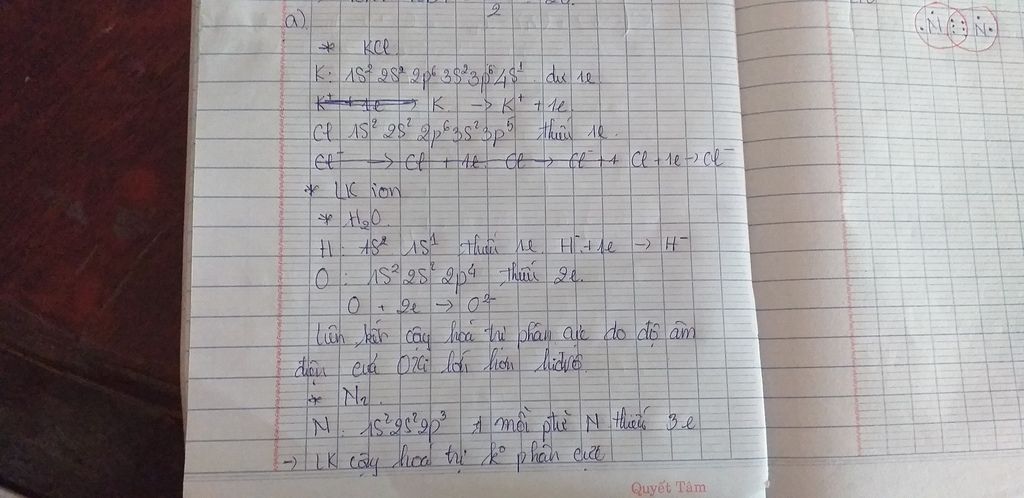 2
a).
* KCl
K: 1S² 2S² 2p⁶ 3S² 3p⁶ 4S¹ dư 1e
K⁺ + 1e → K → K⁺ + 1e.
Cl 1S² 2S² 2p⁶ 3S² 3p⁵ thiếu 1e.
Cl⁻ → Cl + 1e Cl → Cl⁻ + 1 Cl + 1e → Cl⁻
* LK ion
* H₂O.
H: 1S² 1S¹ thiếu 1e H⁻ + 1e → H⁻
O: 1S² 2S² 2p⁴ thiếu 2e.
O + 2e → O²⁻
liên kết cộng hoá trị phân cực do độ âm
điện của Oxi lớn hơn hiđrô.
* N₂.
N: 1S² 2S² 2p³ mỗi N thiếu 3e
→ LK cộng hoá trị k° phân cực
Quyết Tâm
N N